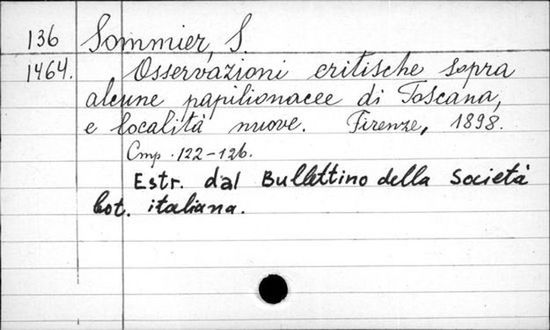 136 Sommier, S.
1464. Osservazioni critische sopra
alcune papilionacee di Toscana,
e località nuove. Firenze, 1898.
Стр. 122-126.
Estr. dal Bullettino della Società
bot. italiana.